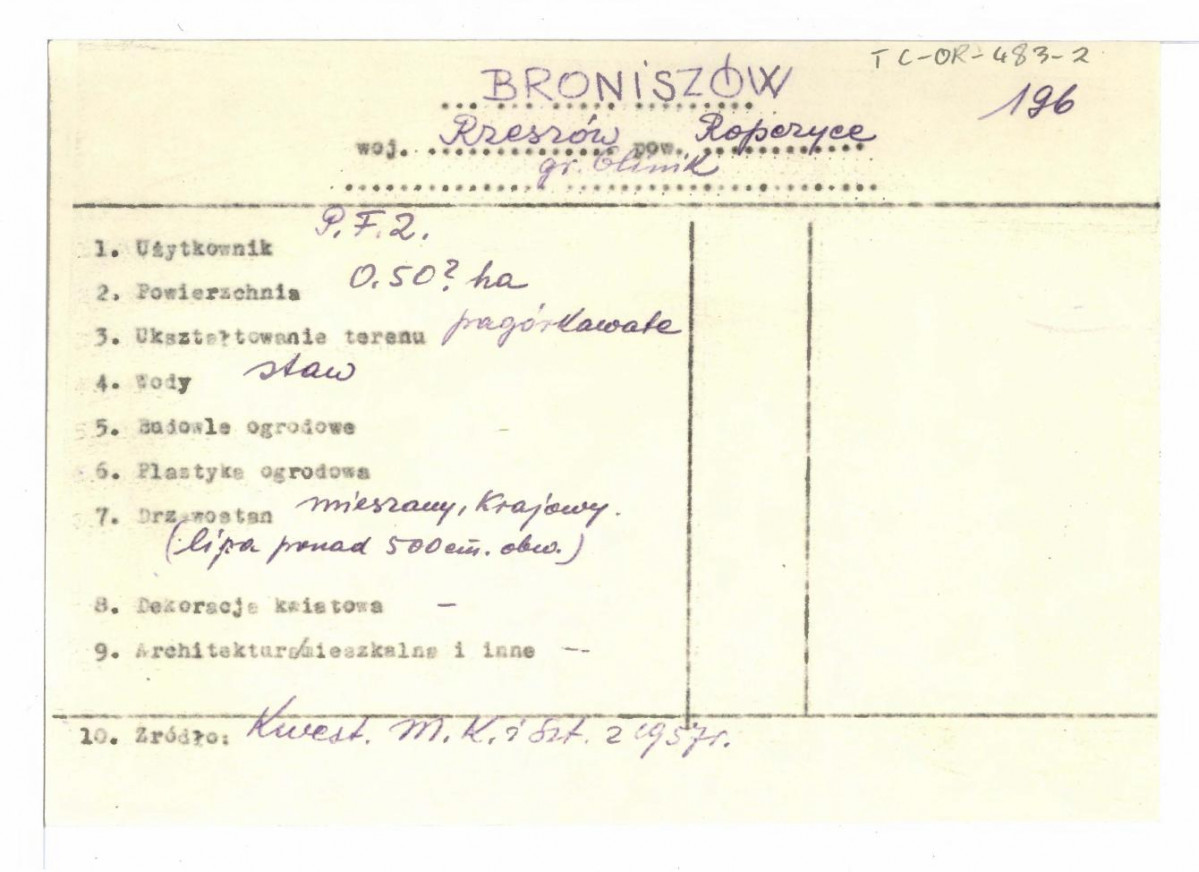 TC-OR-483-2
BRONISZÓW
196
woj. Rzeszów pow. Ropczyce
gr. Glinik
1. Użytkownik P.F.Z.
2. Powierzchnia 0.50? ha
3. Ukształtowanie terenu pagórkowate
4. Wody staw
5. Budowle ogrodowe -
6. Plastyka ogrodowa
7. Drzewostan mieszany, krajowy.
(lipa ponad 500 cm. obw.)
8. Dekoracja kwiatowa -
9. Architektura/mieszkalna i inne --
10. Zródło: Kwest. M.K. i Szt. z 1957r.